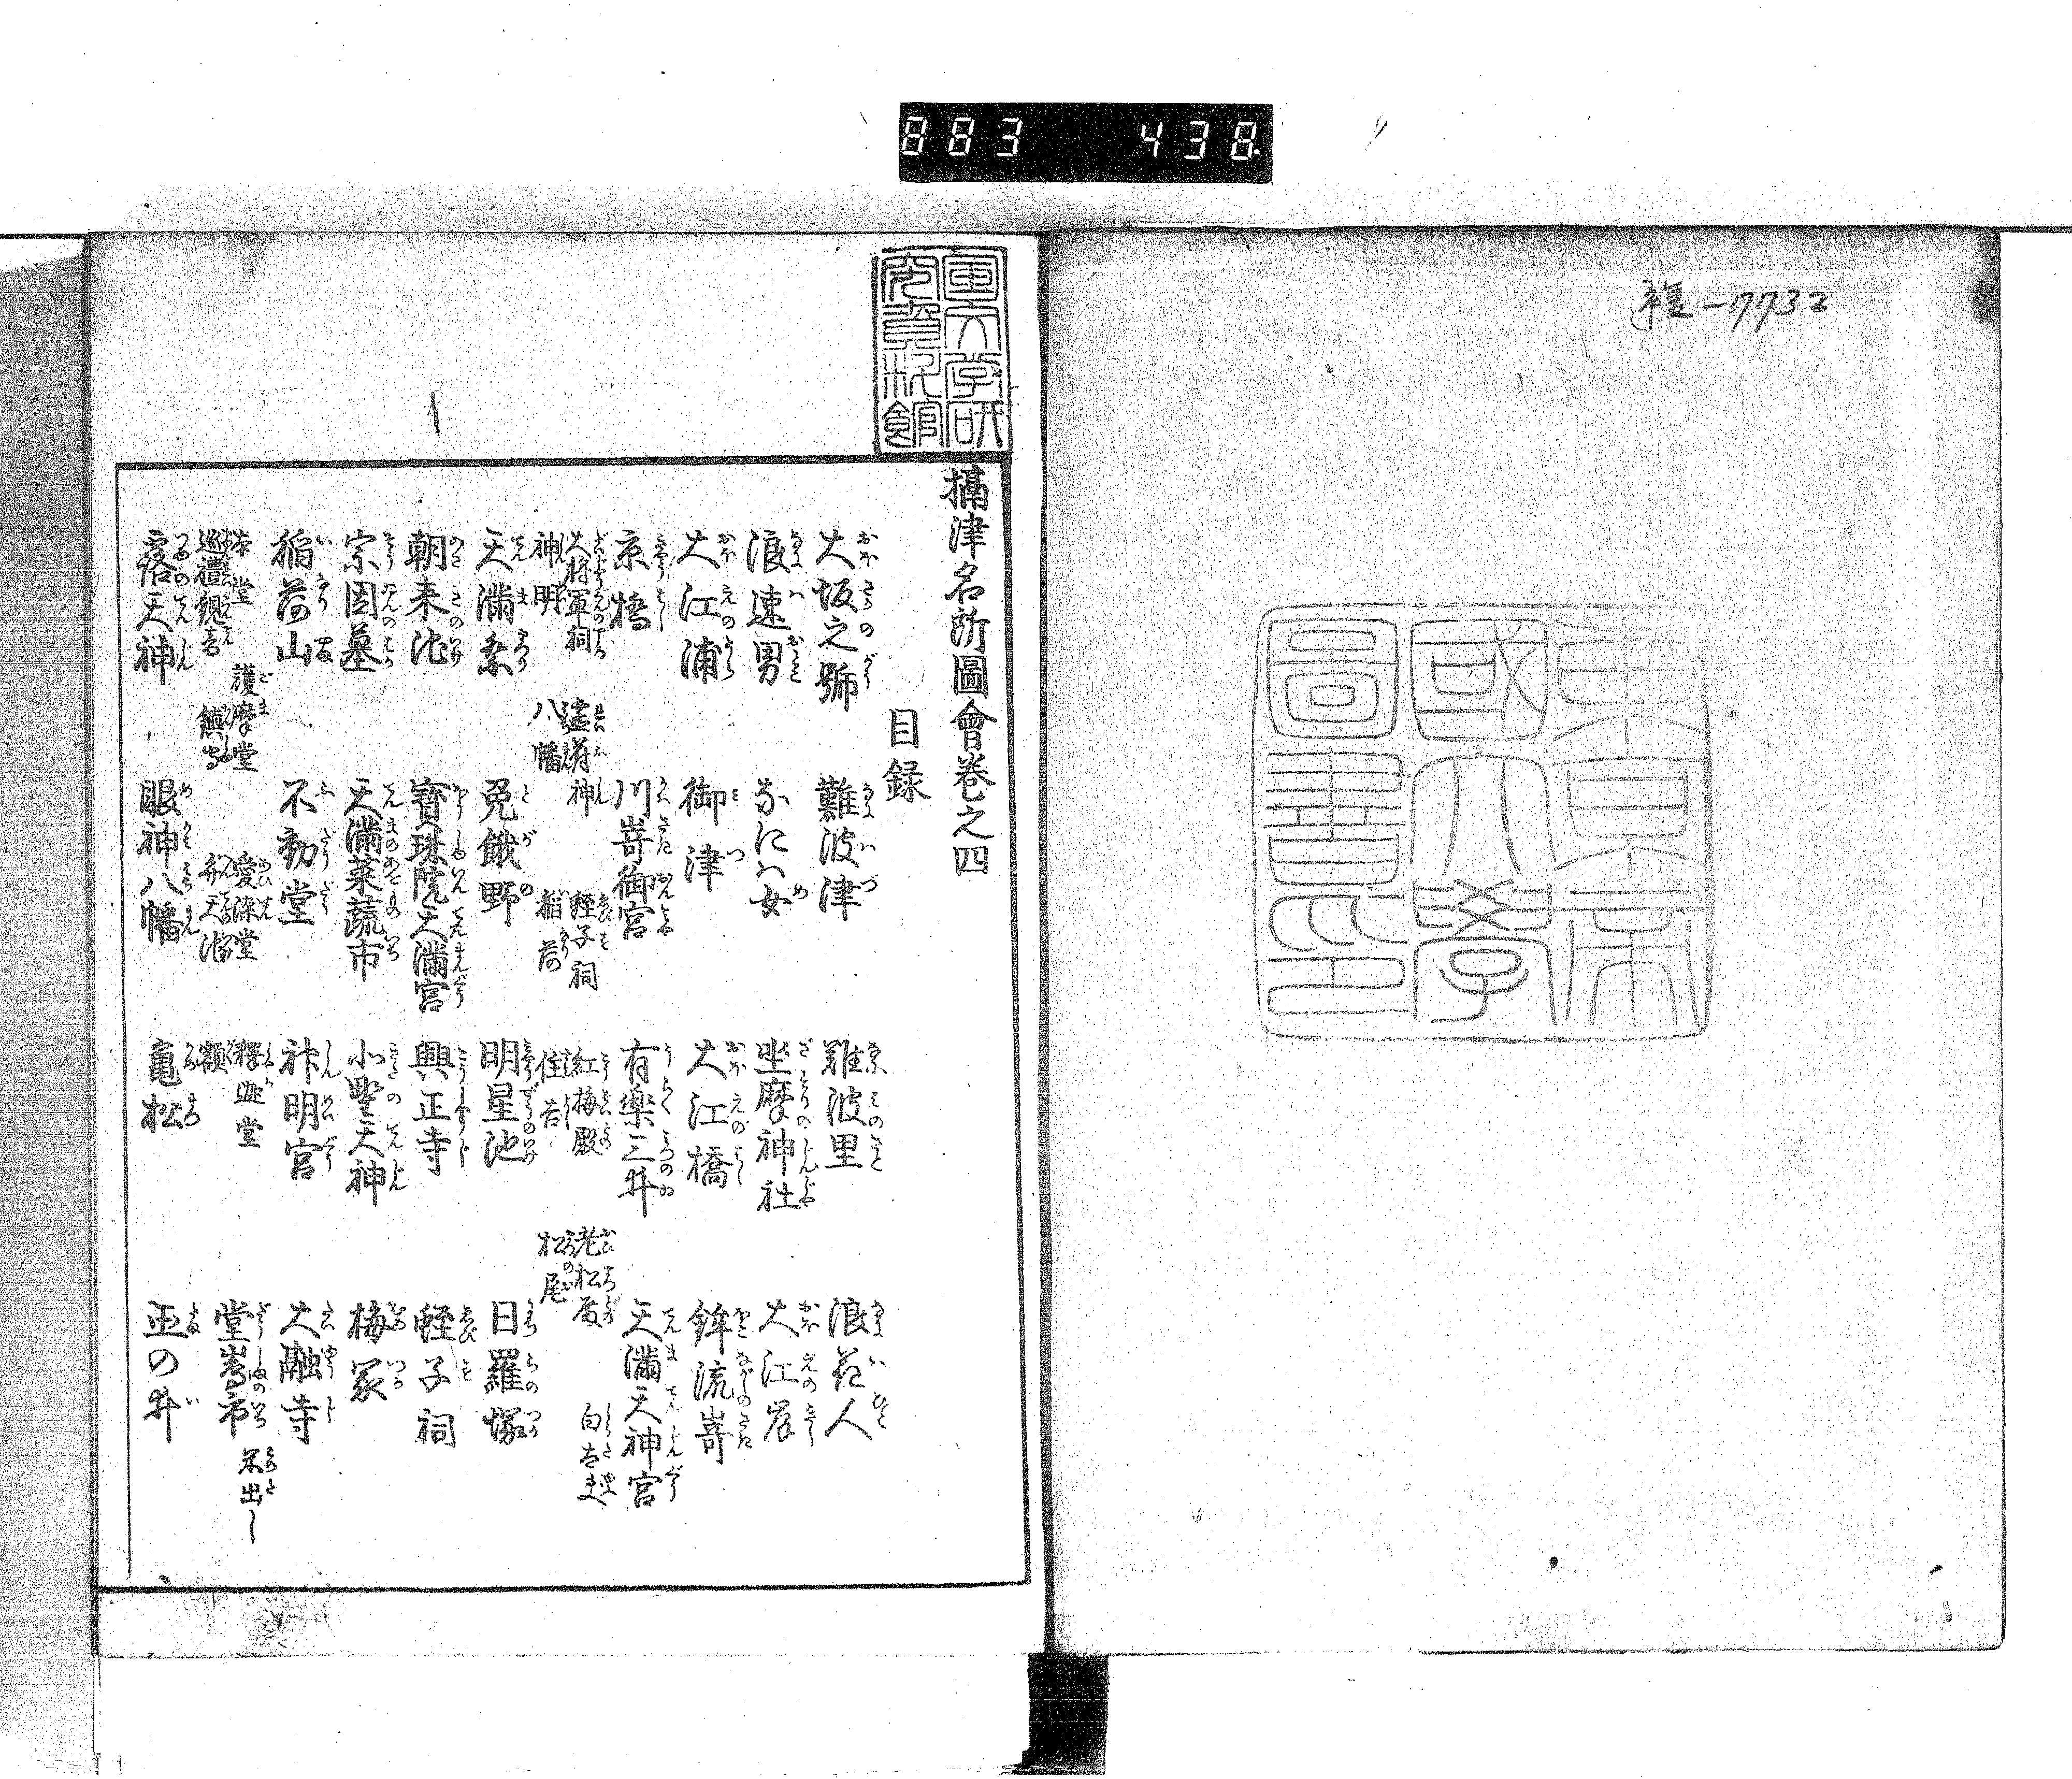 883 438
雑-7732
東京帝
國大學
圖書印
国文学研
究資料館
攝津名所圖會巻之四
目録
大坂之號 難波津 難波里 浪花人
浪速男 なにハ女 坐摩神社 大江岸
大江浦 御津 大江橋 鉾流嵜
京橋 川嵜御宮 有樂三井 天滿天神宮
大將軍祠 蛭子祠 紅梅殿 老松殿 白太夫
神明 八幡 稲荷 住吉 松尾
天滿祭 兎餓野 明星池 日羅塚
朝来池 寶珠院天滿宮 興正寺 蛭子祠
宗因墓 天滿菜蔬市 小野天神 梅冢
稲荷山 不動堂 神明宮 大融寺
本堂 護摩堂 愛染堂 釋迦堂
巡禮観音 鎮守 弁天池 額 堂嶌市
露天神 眼神八幡 亀松 正の井